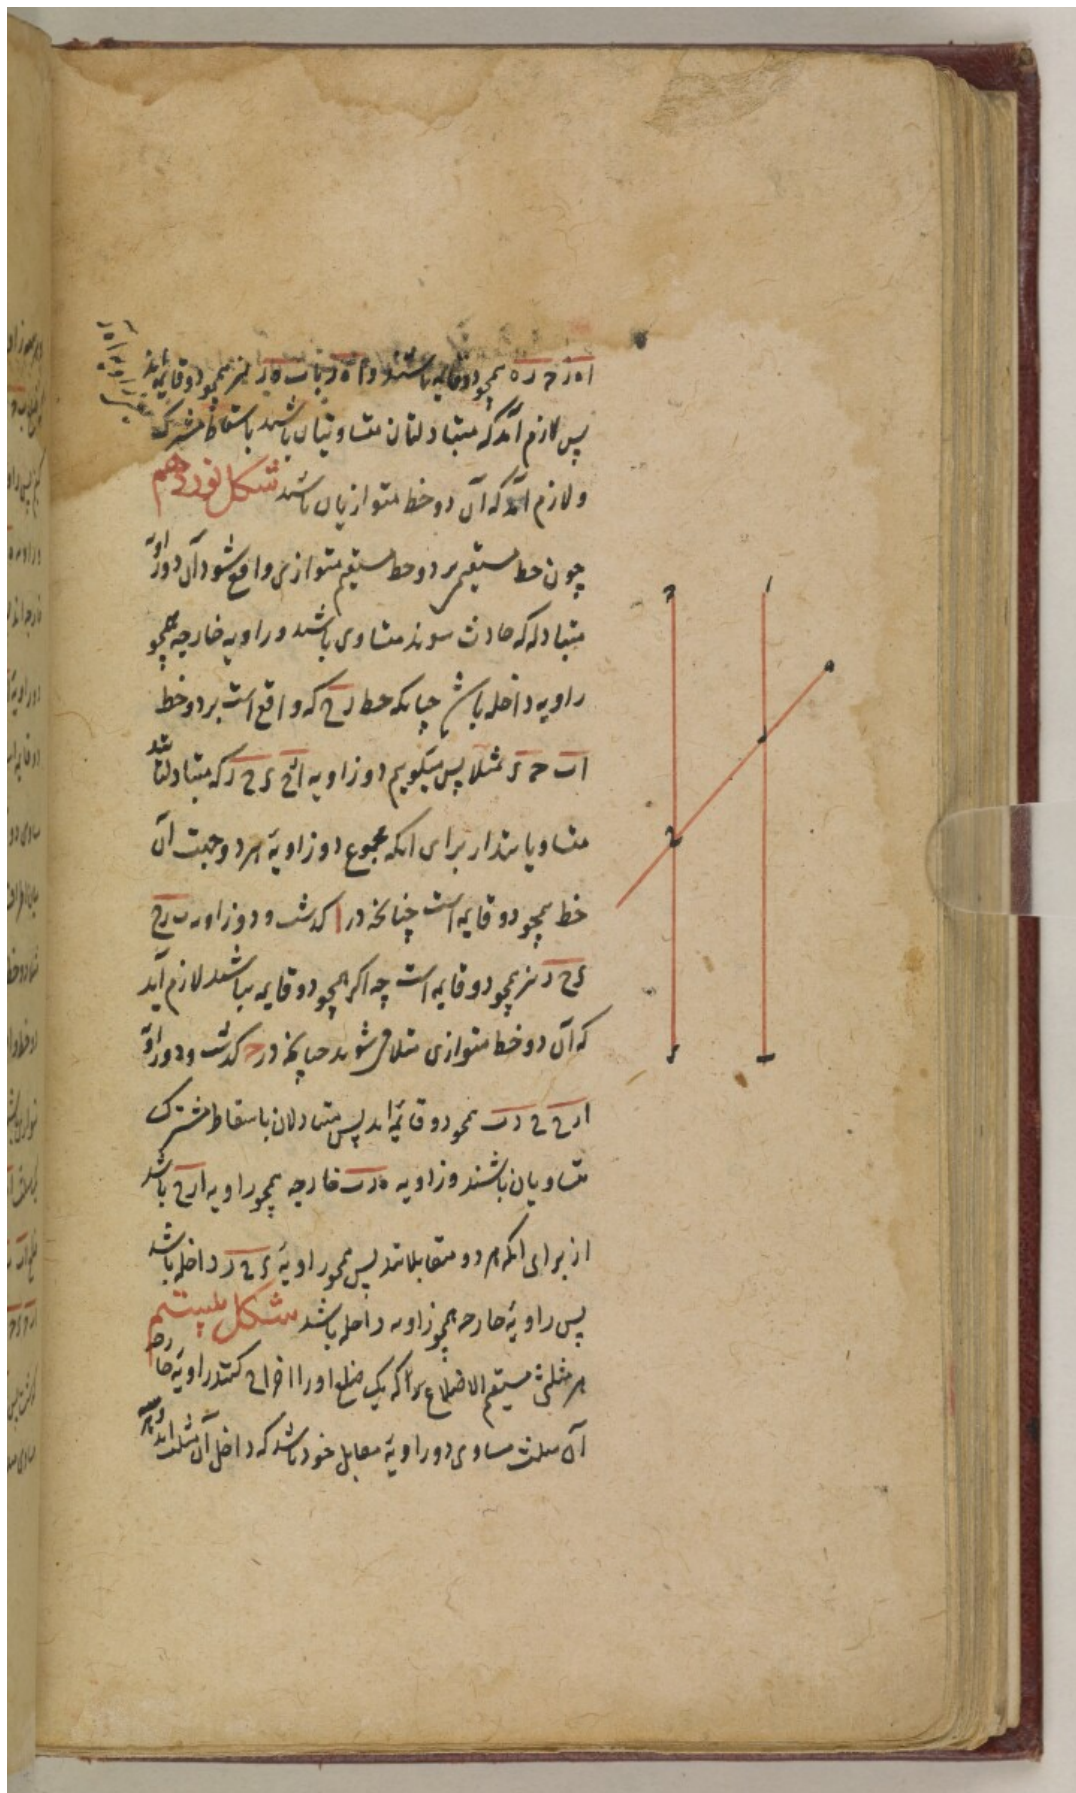 همچو دو قایمه باشند و نیز همچو دو قایمه‌اند
پس لازم آمد که متبادلتان متساویتان باشند باسقاط مشترک
و لازم آمد که آن دو خط متوازیان باشند شکل نوزدهم
چون خط مستقیم بر دو خط مستقیم متوازی واقع شود آن دو زاویه
متبادله که حادث شوند متساوی باشند و زاویه خارجه همچو
زاویه داخله باشد چنانکه خط رح که واقع است بر دو خط
اب ح ء مثلا پس میگوییم دو زاویه ارح ء ح ر که متبادلتانند
متساویانند از برای انکه مجموع دو زاویهٔ هر دو جهت آن
خط همچو دو قایمه است چنانچه در ا گذشت و دو زاویه ب رح
ء ح ر نیز همچو دو قایمه است چه اگر همچو دو قایمه نباشند لازم آید
که آن دو خط متوازی متلاقی شوند چنانچه در گذشت و دو زاویه
ارح ح رب همچو دو قائمه‌اند پس متبادلان باسقاط مشترک
متساویان باشند و زاویه ه رب خارجه همچو زاویه ارح باشد
از برای انکه هر دو متقابلانند پس همچو زاویهٔ ء ح ر داخله باشد
پس زاویهٔ خارجه همچو زاویه داخله باشد شکل بیستم
هر مثلث مستقیم الاضلاع را که یک ضلع او را اخراج کنند زاویهٔ خارجه
آن مثلث مساوی دو زاویهٔ مقابل خود باشد که داخل آن مثلث‌اند
ح
ا
ه
ر
ح
ء
ب